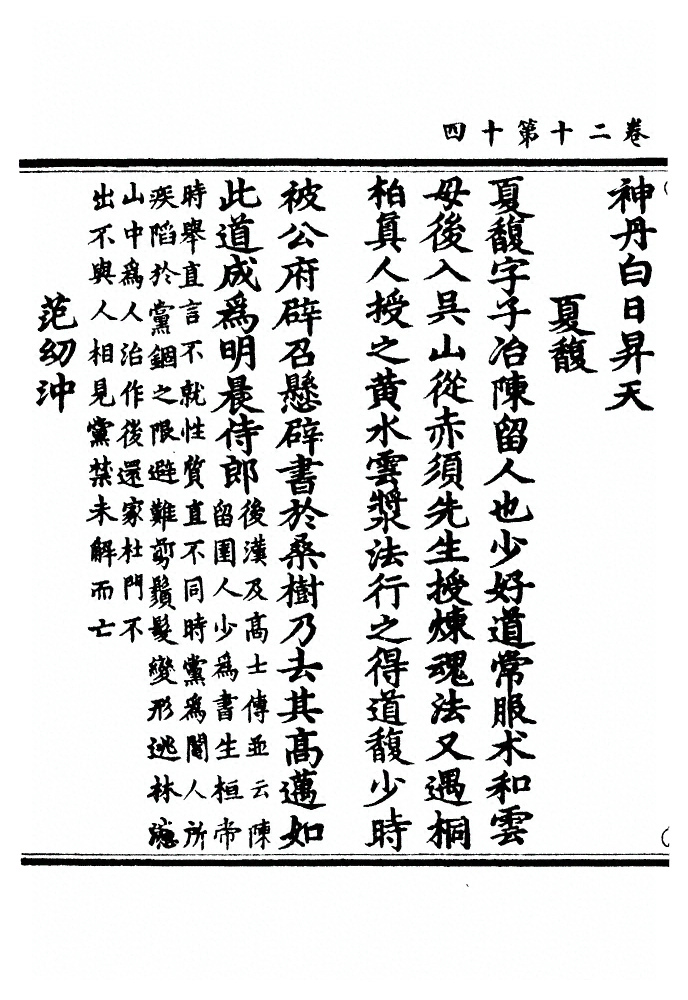 卷二十第十四
神丹白日昇天
夏馥
夏馥字子冶陳留人也少好道常服术和雲
母後入吳山從赤須先生授煉魂法又遇桐
柏真人授之黄水雲漿法行之得道馥少時
被公府辟召懸辟書於桑樹乃去其髙邁如
此道成爲明晨侍郎
後漢及髙士傳並云陳
留圉人少爲書生桓帝
時舉直言不就性質直不同時黨爲閹人所
疾陷於黨錮之限避難剪鬚髮變形逃林慮
山中爲人治作後還家杜門不
出不與人相見黨禁未解而亡
范幼沖